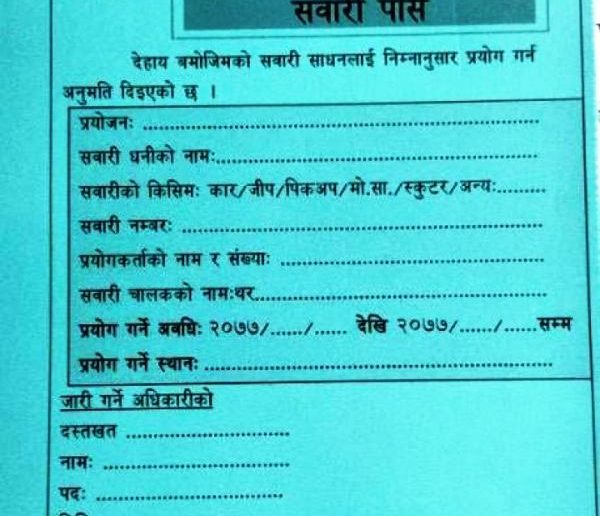 सवारी पास
देहाय बमोजिमको सवारी साधनलाई निम्नानुसार प्रयोग गर्न
अनुमति दिइएको छ ।
प्रयोजनः ........................................................
सवारी धनीको नामः..............................................
सवारीको किसिमः कार/जीप/पिकअप/मो.सा./स्कुटर/अन्यः.........
सवारी नम्बरः ....................................................
प्रयोगकर्ताको नाम र संख्याः ......................................
सवारी चालकको नामःथर..........................................
प्रयोग गर्ने अवधिः २०७७/....../...... देखि २०७७/....../......सम्म
प्रयोग गर्ने स्थानः ..................................................
जारी गर्ने अधिकारीको
दस्तखत ........................
नामः ...........................
पदः ...........................